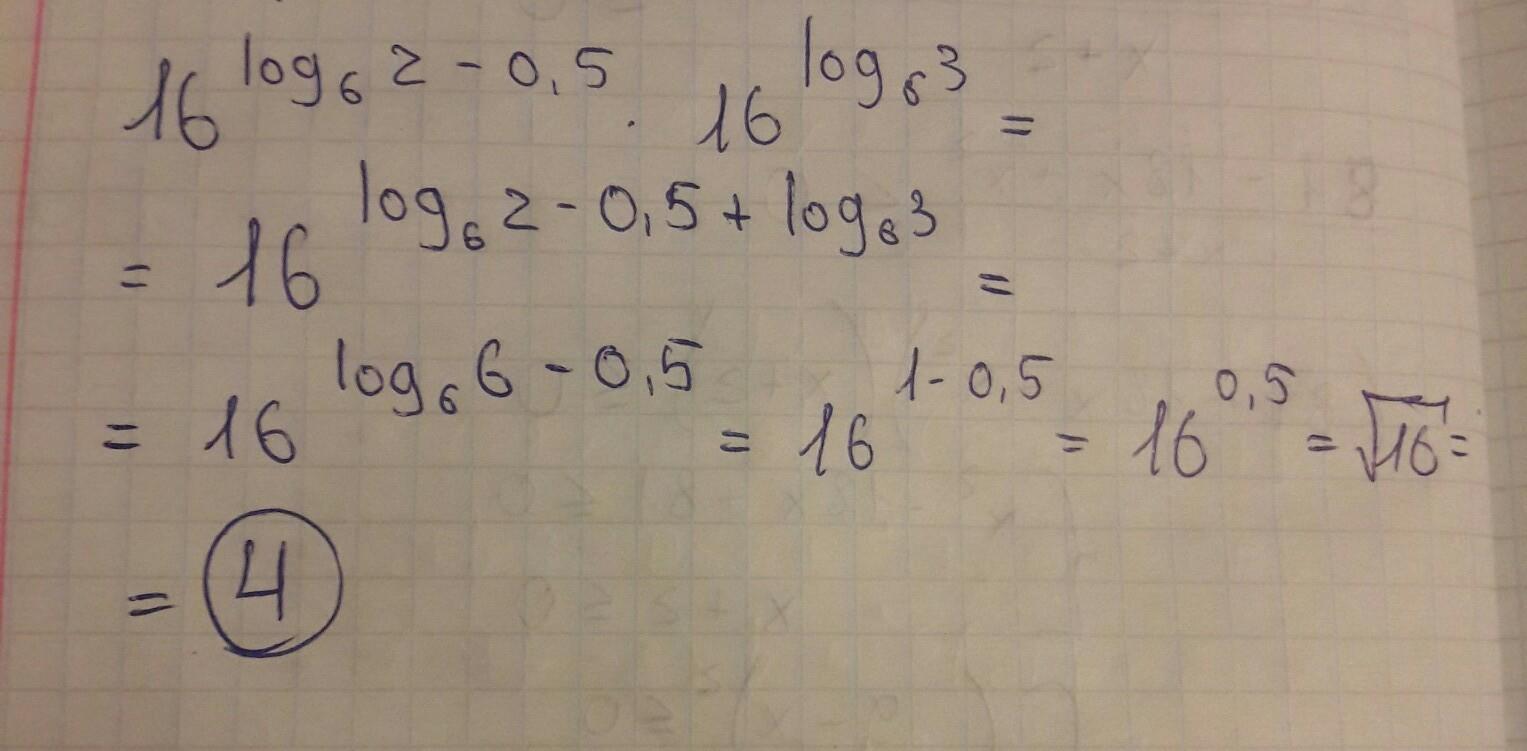 16^{log₆2 - 0,5} · 16^{log₆3} =
= 16^{log₆2 - 0,5 + log₆3} =
= 16^{log₆6 - 0,5} = 16^{1 - 0,5} = 16^{0,5} = √16 =
= 4